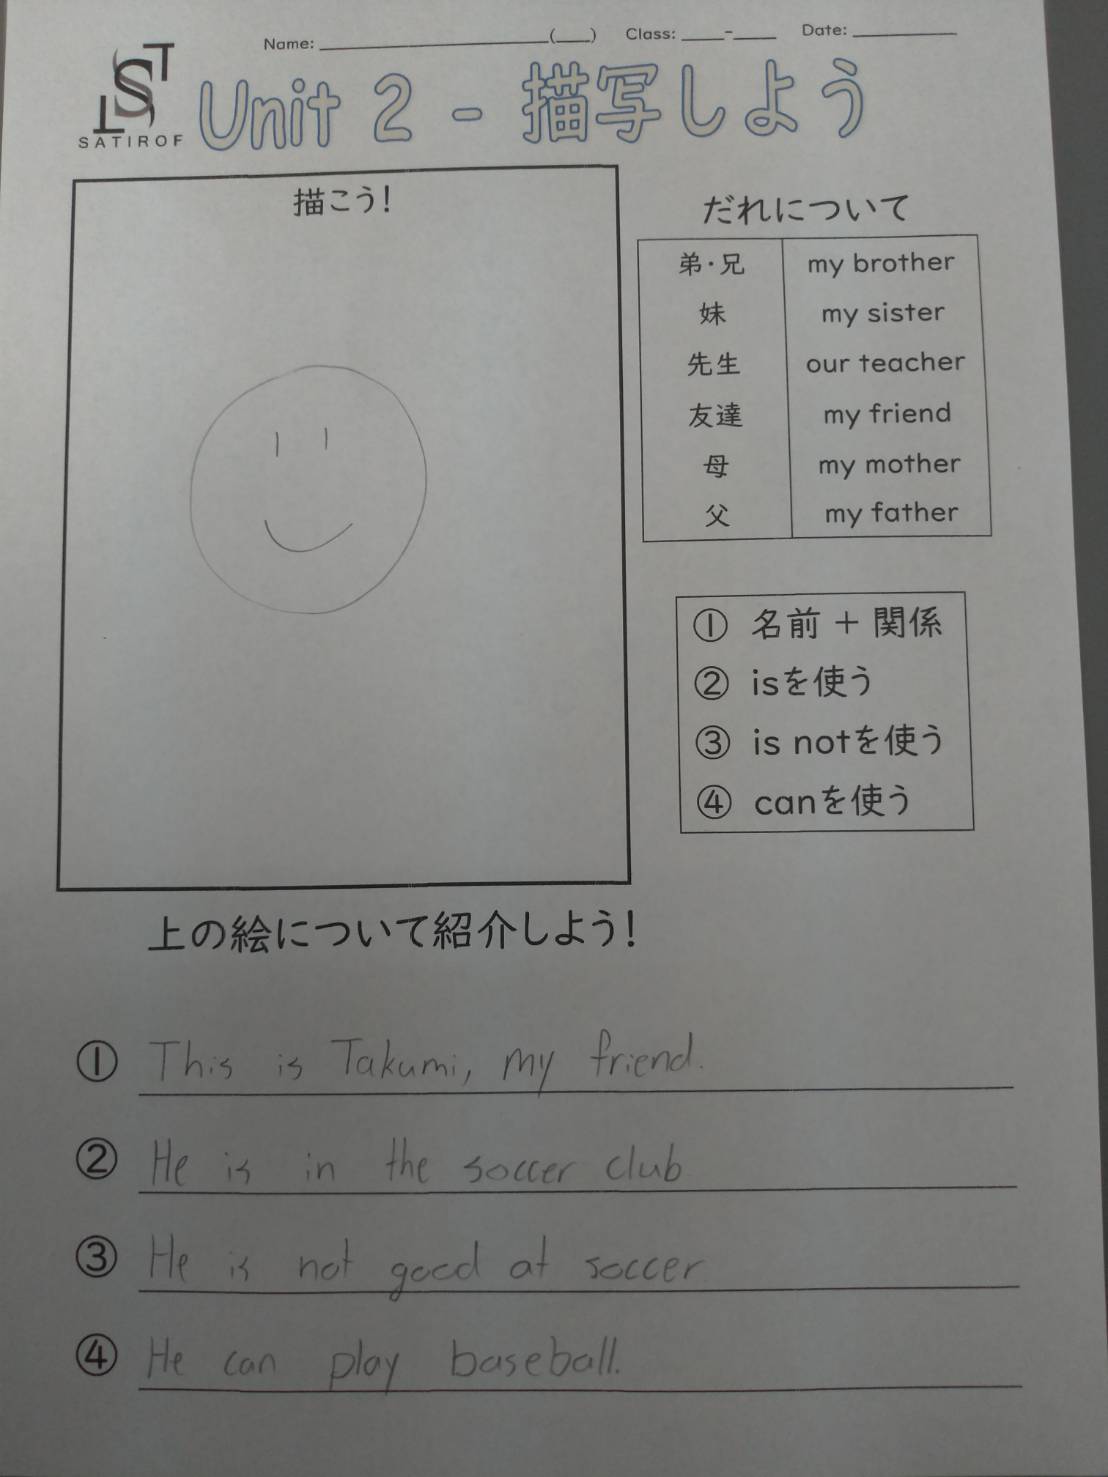 Name: ____________(___) Class: ____-____ Date: ________
LST
SATIROF
Unit 2 - 描写しよう
描こう!
だれについて
弟・兄 my brother
妹 my sister
先生 our teacher
友達 my friend
母 my mother
父 my father
① 名前 + 関係
② isを使う
③ is notを使う
④ canを使う
上の絵について紹介しよう!
① This is Takumi, my friend.
② He is in the soccer club
③ He is not good at soccer
④ He can play baseball.